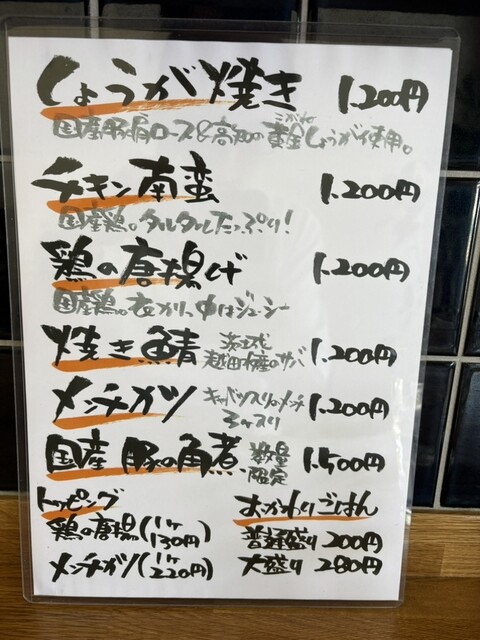 しょうが焼き 1.200円
国産豚肩ロース&高知の黄金しょうが使用。
チキン南蛮 1.200円
国産鶏。タルタルたっぷり!
鶏の唐揚げ 1.200円
国産鶏。衣カリっ中はジューシー
焼き鯖 茨城 越田水産のサバ 1.200円
メンチカツ キャベツ入りのメンチ 3ヶ入り 1.200円
国産豚の角煮 数量限定 1.500円
トッピング
鶏の唐揚(1ヶ130円)
メンチカツ(1ヶ220円)
おかわりごはん
普通盛り 200円
大盛り 280円